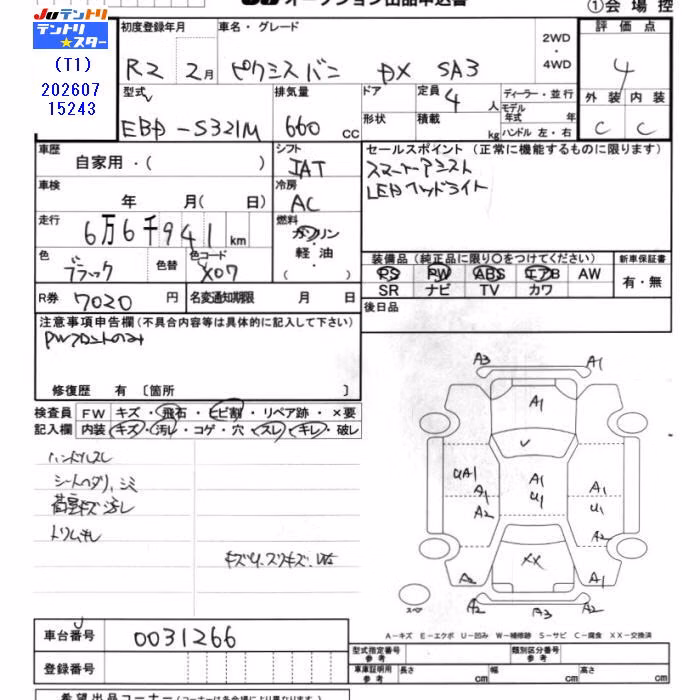 JU オークション出品申込書
①会場控
JUテントリ
テントリ★スター
(T1)
202607
15243
初度登録年月
車名・グレード
2WD
・
4WD
評価点
R2 2月
ピクシスバン DX SA3
4
型式
排気量
ドア
定員 4 人
ディーラー・並行
モデル年式 年
外装
内装
EBD-S321M
660 cc
形状
積載 kg
ハンドル 左・右
C
C
車歴
自家用・( )
シフト
IAT
セールスポイント(正常に機能するものに限ります)
スマートアシスト
LEDヘッドライト
車検
年 月(日)
冷房
AC
走行
6万6千941km
燃料
ガソリン
・
軽油
( )
色
ブラック
色替
色コード
X07
装備品(純正品に限り○をつけてください)
新車保証書
PS PW ABS エアB AW
SR ナビ TV カワ
有・無
R券 7020 円
名変通知期限 月 日
後日品
注意事項申告欄(不具合内容等は具体的に記入して下さい)
PWフロントのみ
修復歴 有 〔箇所 〕
検査員
記入欄
FW キズ・飛石・ヒビ割・リペア跡・×要
内装 キズ・汚レ・コゲ・穴・スレ・キレ・破レ
ハンドルスレ
シートヘタリ、シミ
荷室キズ汚レ
トリムキレ
A3
A1
A1
UA1
A1
A2
A1
U1
A1
U1
A2
XX
A2
A1
A2
A3
A2
スペア
A-キズ E-エクボ U-凹み W-補修跡 S-サビ C-腐食 XX-交換済
車台番号
0031266
登録番号
型式指定番号
参考
類別区分番号
参考
車庫証明用
参考
長さ cm
幅 cm
高さ cm
希望出品コーナー